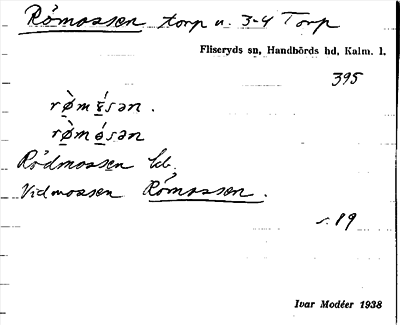 Römossen torp u. 3-4 Torp
Fliseryds sn, Handbörds hd, Kalm. l.
395
Rödmossen kb.
Vidmossen Römossen.
s. 89
Ivar Modéer 1938